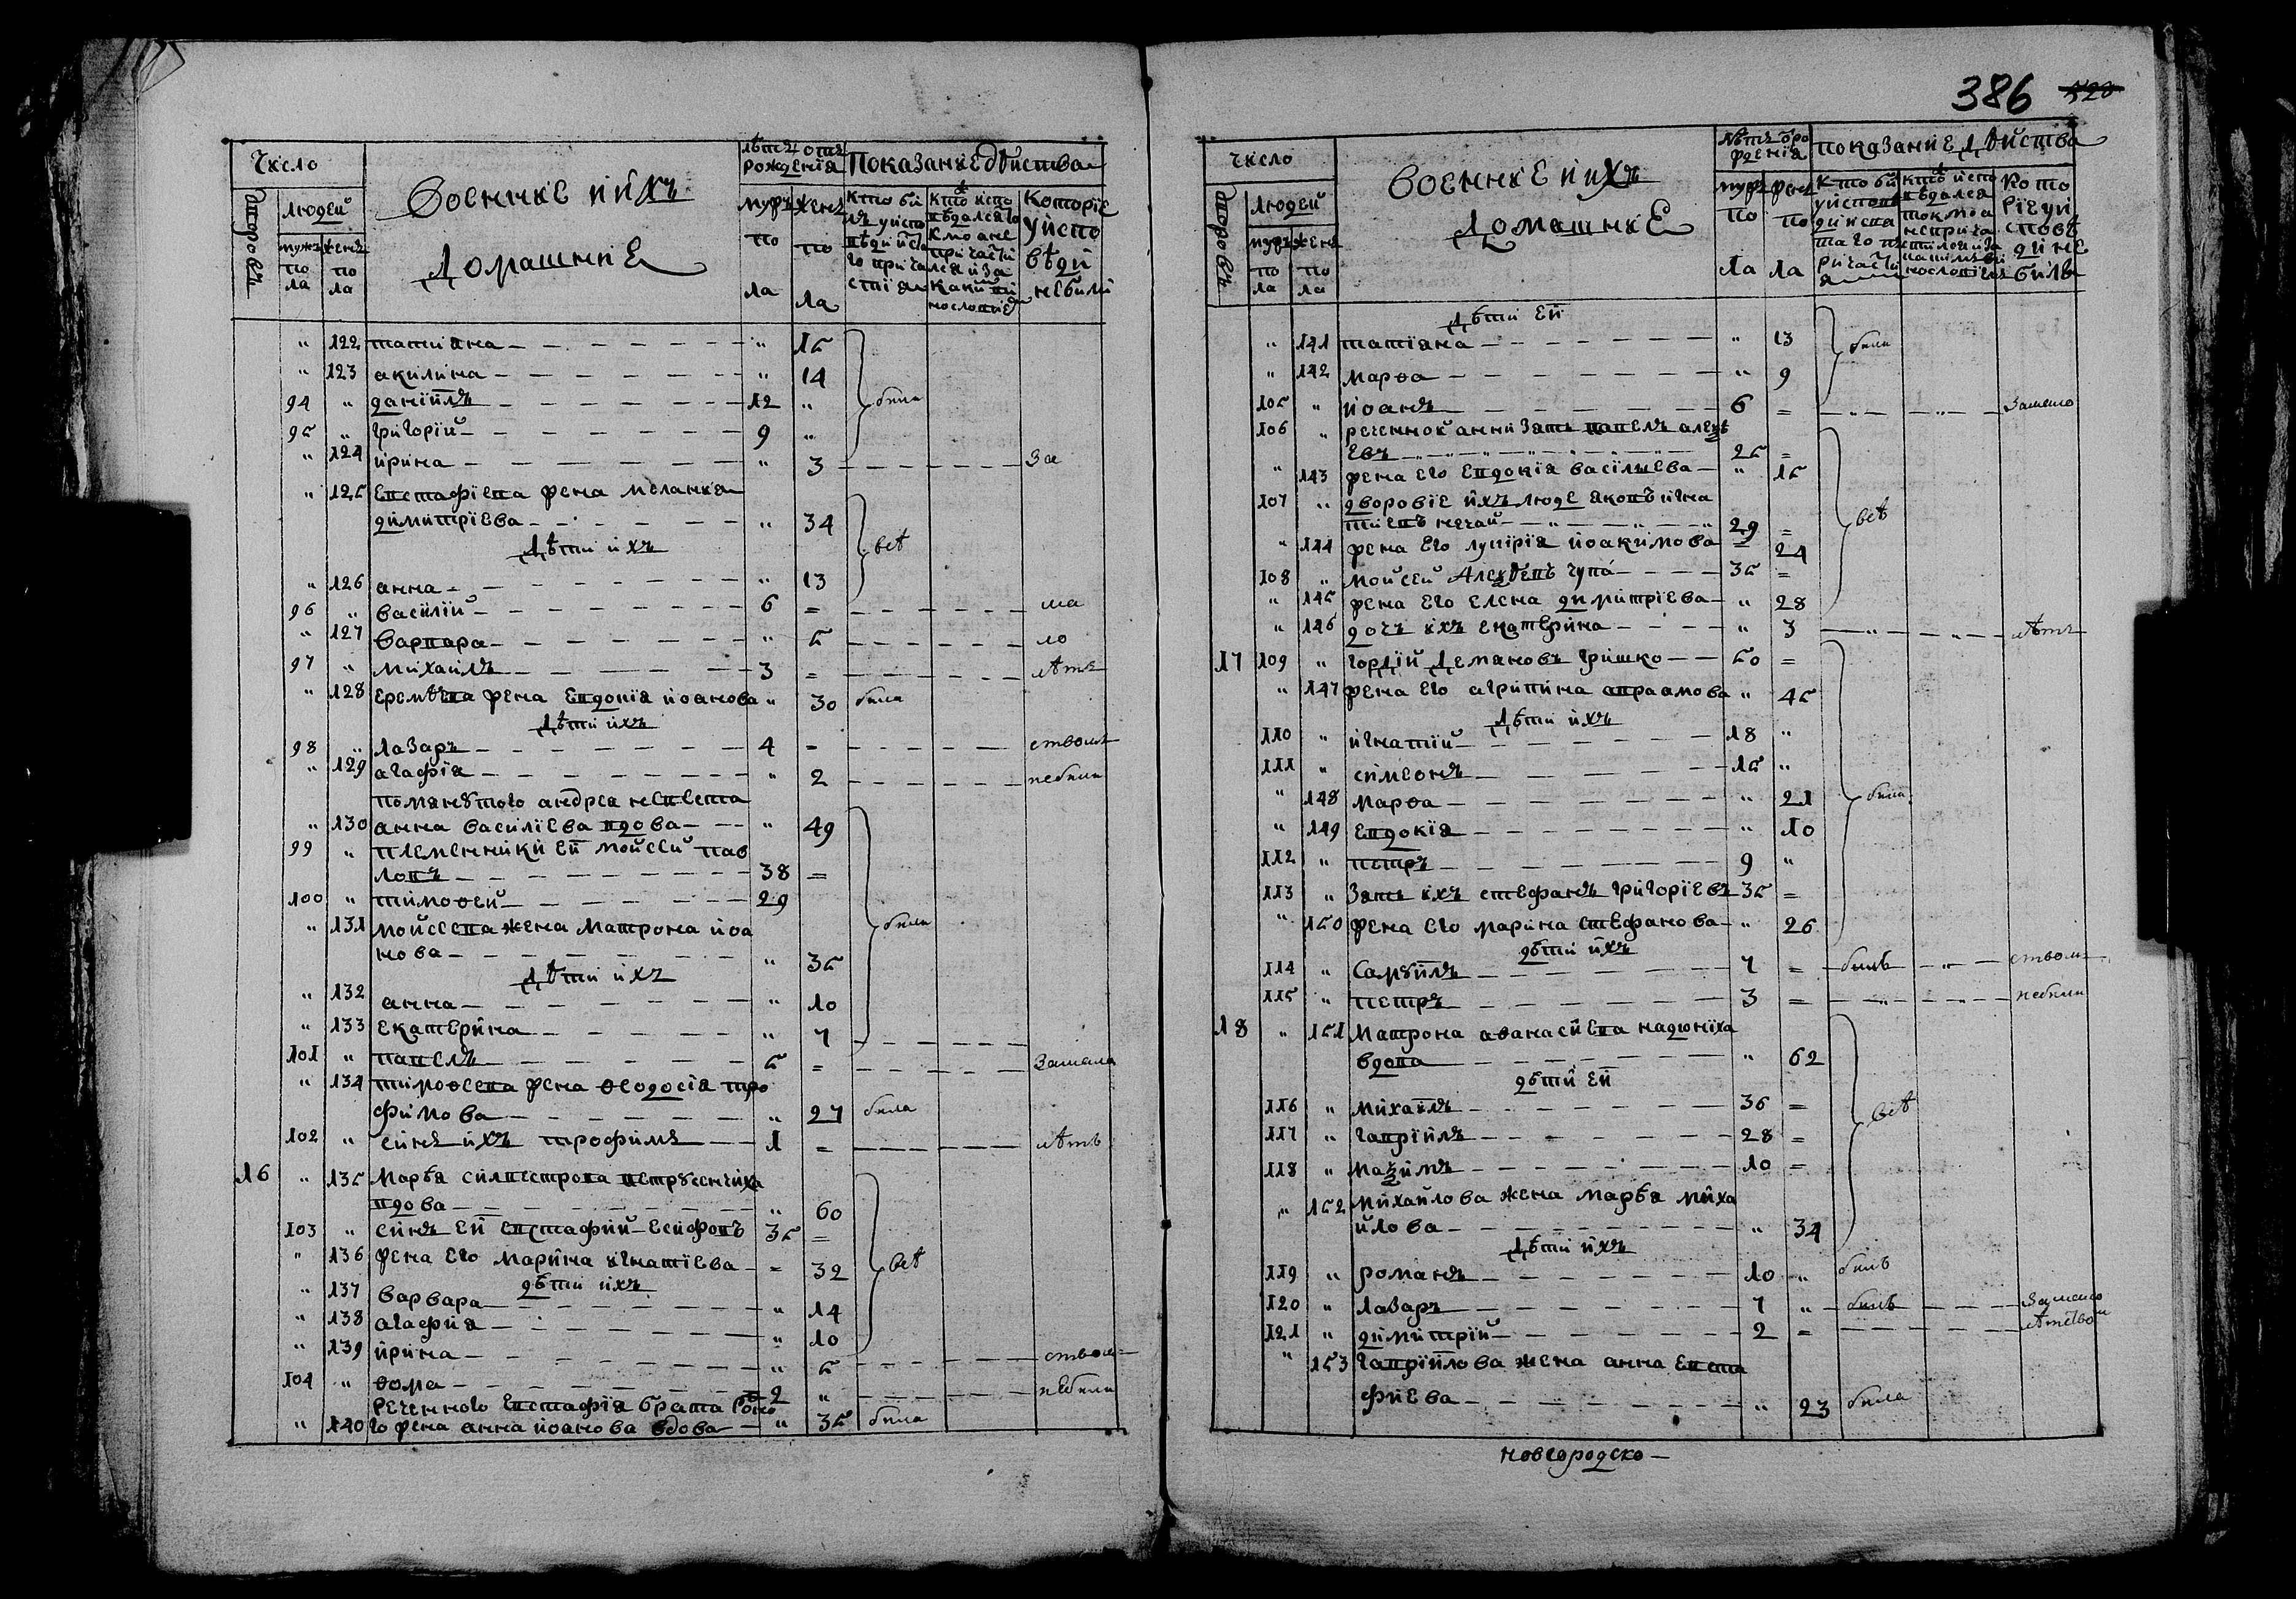 Число
Военние и ихъ
Домашние
лѣта отъ
рожденія
Показание дѣйства
дворовъ
людей
мужъ по ла
женъ по ла
мужъ по ла
женъ по ла
Кто би лъ у испо вѣди и с. то причастия
Кто испо вѣдался то кмо а не причасти лся и за каким винословием
Которіе у испо вѣди не били
" 122 татияна " 15
" 123 акилина " 14
94 " даніилъ 12 " били
95 " григорій 9 "
" 124 ирина " 3 За
" 125 Евстафиева жена меланкя
димитріева " 34
Дѣти ихъ всѣ
" 126 анна " 13
96 " василій 6 = ма
" 127 варвара " 5 ло
97 " михаилъ 3 = лѣтъ
" 128 Еремѣева жена Евдокія иоанова " 30 била
Дѣти ихъ
98 " Лазаръ 4 = ством
" 129 агафія " 2 небили
помянутого андрея невѣста
" 130 анна василіева вдова " 49
99 " племенники ей мойсей пав
ловъ 38 =
100 " тимофей 29
" 131 мойсеева жена матрона иоа били
нова " 35
Дѣти ихъ
" 132 анна " 10
" 133 Екатерина " 7
101 " павелъ 5 = Замало
" 134 тимофеева жена феодосія тро
фимова " 27 била
102 " синъ ихъ трофимъ 1 = лѣтъ
16 " 135 Марѣя силвестрова
вдова " 60
103 " синъ ей Евстафий 35 =
" 136 жена его марина игнатіева = 32 всѣ
дѣти ихъ
" 137 варвара " 14
" 138 агафия " 10
" 139 ирина " 5 ством
104 " фома 2 " небили
реченного Евстафія брата
" 140 го жена анна иоанова вдова " 35 била
386 520
Число
Военние и ихъ
Домашние
лѣта отъ ро
жденія
показание Дѣйства
дворовъ
людей
мужъ по ла
женъ по ла
мужъ по ла
жен по ла
Кто би у исповѣ ди и свя таго при частия
кто испо вѣдался токмо а не прича стился и за каким ви нословием
Кото ріе у и сповѣ ди не били
Дѣти ей
" 141 татіяна " 13 били
" 142 марфа " 9
105 " иоанъ 6 = Замало
106 " реченной анни зять павелъ алеѯѣ
евъ 25 =
" 143 жена его Евдокія васілиева " 15
107 " дворовіе ихъ люде яковъ игна
тиевъ нечай 29 = всѣ
" 144 жена его лукірія иоакимова = 24
108 " мойсей Алеѯѣевъ чупа 35 =
" 145 жена его елена димитріева " 28
" 146 дочь ихъ екатерина " 3 лѣтъ
17 109 " гордій Демяновъ гришко 50 =
" 147 жена его агрипина авраамова " 45
Дѣти ихъ
110 " игнатий 18 "
111 " симеонъ 15 "
" 148 марфа " 21 били
" 149 Евдокія " 10
112 " петръ 9 "
113 " Зять ихъ стефанъ григоріевъ 35 =
" 150 жена его марина стефанова " 26
дѣти ихъ
114 " Самуилъ 7 = билъ ством
115 " петръ 3 = небили
18 " 151 Матрона афанасиева надюніха
вдова " 62
дѣти ей
116 " михаилъ 36 = всѣ
117 " гавріилъ 28 =
118 " маѯимъ 10 =
" 152 михайлова жена марѣя миха
йлова " 34
Дѣти ихъ
119 " романъ 10 " билъ
120 " Лазаръ 7 " билъ Замало
121 " димитрій 2 = лѣтством
" 153 гавріилова жена анна Евста
фиева " 23 била
новгородско